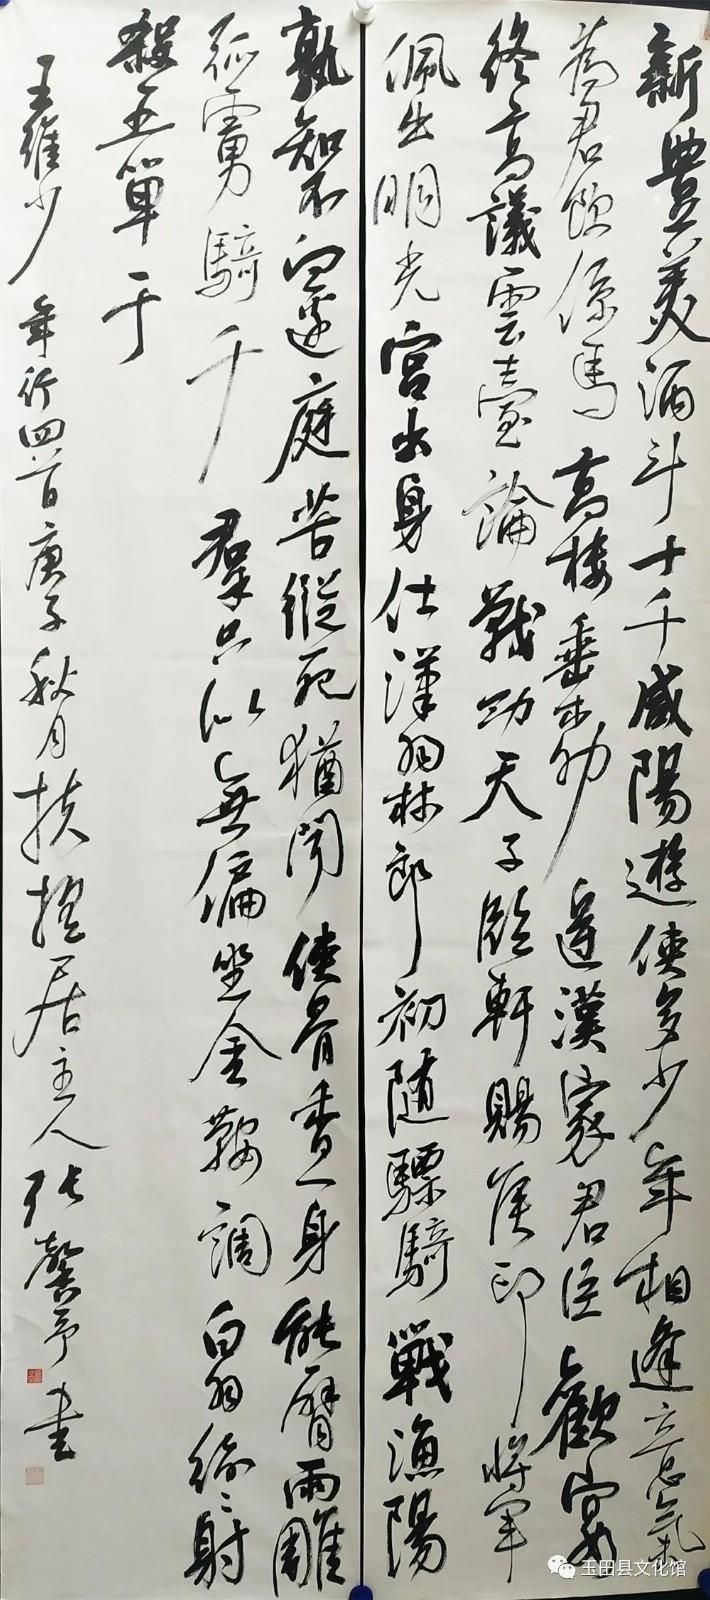 新豐美酒斗十千咸陽遊俠多少年相逢意氣
為君飲係馬高樓垂柳邊漢家君臣歡宴
終高議雲臺論戰功天子臨軒賜侯印將軍
佩出明光宮出身仕漢羽林郎初隨驃騎戰漁陽
孰知不向邊庭苦縱死猶聞俠骨香一身能臂兩雕
弧虜騎千群只似無偏坐金鞍調白羽紛〻射
殺五單于
王維少年行四首庚子秋月扶搖居主人張馨予書
玉田县文化馆